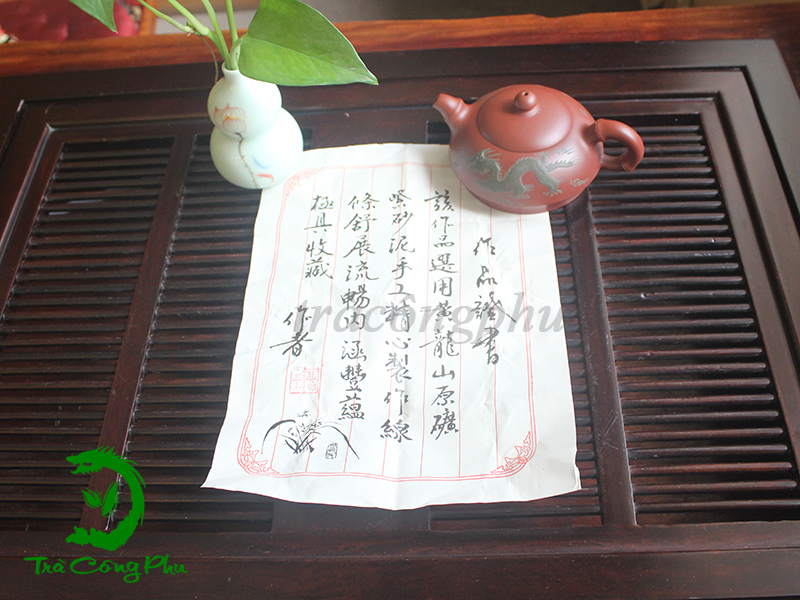 作品證書
該作品選用黃龍山原礦
紫砂泥手工精心製作線
條舒展流暢內涵豐蘊
極具收藏
作者
tracongphu
Trà Công Phu